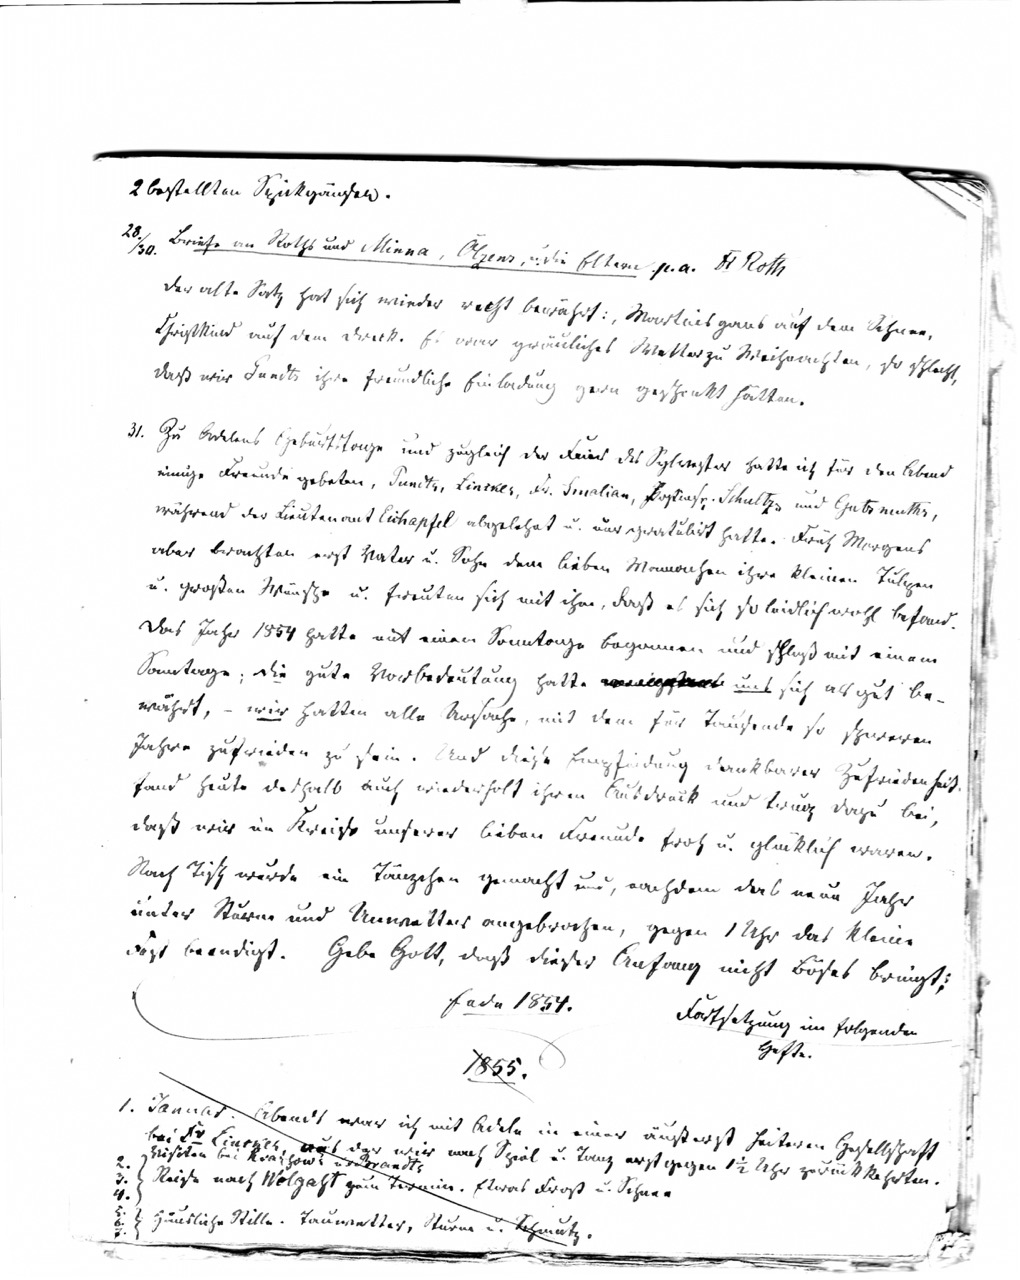 2 bestellten Spickgänsen.
28./30. Briefe an Roths und Minna, Ölzens, u. die Eltern p.a. Fr Roth
Der alte Satz hat sich wieder recht bewährt: „Martinsgans auf dem Schnee,
Christkind auf dem Dreck. Es war gräuliches Wetter zu Weihnachten, so schlecht,
daß wir ihre freundliche Einladung gern geschenkt hätten.
31. Zu Adelens Geburtstage und zugleich der Feier des Sylvester hatte ich für den Abend
einige Freunde gebeten, Linckes, Fr. Smalian, Schultz und Gutsmuths,
während der Lieutenant Eichapfel abgelehnt u. nur gratulirt hatte. Früh Morgens
aber brachten erst Vater u. Sohn dem lieben Mamachen ihre kleinen Tulpen
u. großen Wünsche u. freuten sich mit ihr, daß es sich so leidlich wohl befand.
Das Jahr 1854 hatte mit einem Sonntage begonnen und schloß mit einem
Sonntage; die gute Vorbedeutung hatte uns sich als gut be-
währt, – wir hatten alle Ursache, mit dem für Tausende so schweren
Jahre zufrieden zu sein. Und diese Empfindung dankbarer Zufriedenheit
fand heute deshalb auch wiederholt ihren Ausdruck und trug dazu bei,
daß wir im Kreise unserer lieben Freunde froh u. glücklich waren.
Nach Tisch wurde ein Tänzchen gemacht und, nachdem das neue Jahr
unter Sturm und Unwetter angebrochen, gegen 1 Uhr das kleine
Fest beendigt. Gebe Gott, daß dieser Anfang nicht Böses bringt;
Ende 1854.
Fortsetzung im folgenden
Hefte.
1855.
1. Januar. Abends war ich mit Adele in einer äußerst heiteren Gesellschaft
bei Fr Linckes, aus der wir nach Spiel u. Tanz erst gegen 1½ Uhr zurückkehrten.
2. Visiten bei u. Brandts
3. Reise nach Wolgast zum Termin. Etwas Frost u. Schnee
4.
5.
6. Häusliche Stille. Tauwetter, Sturm u. Schmutz.
7.